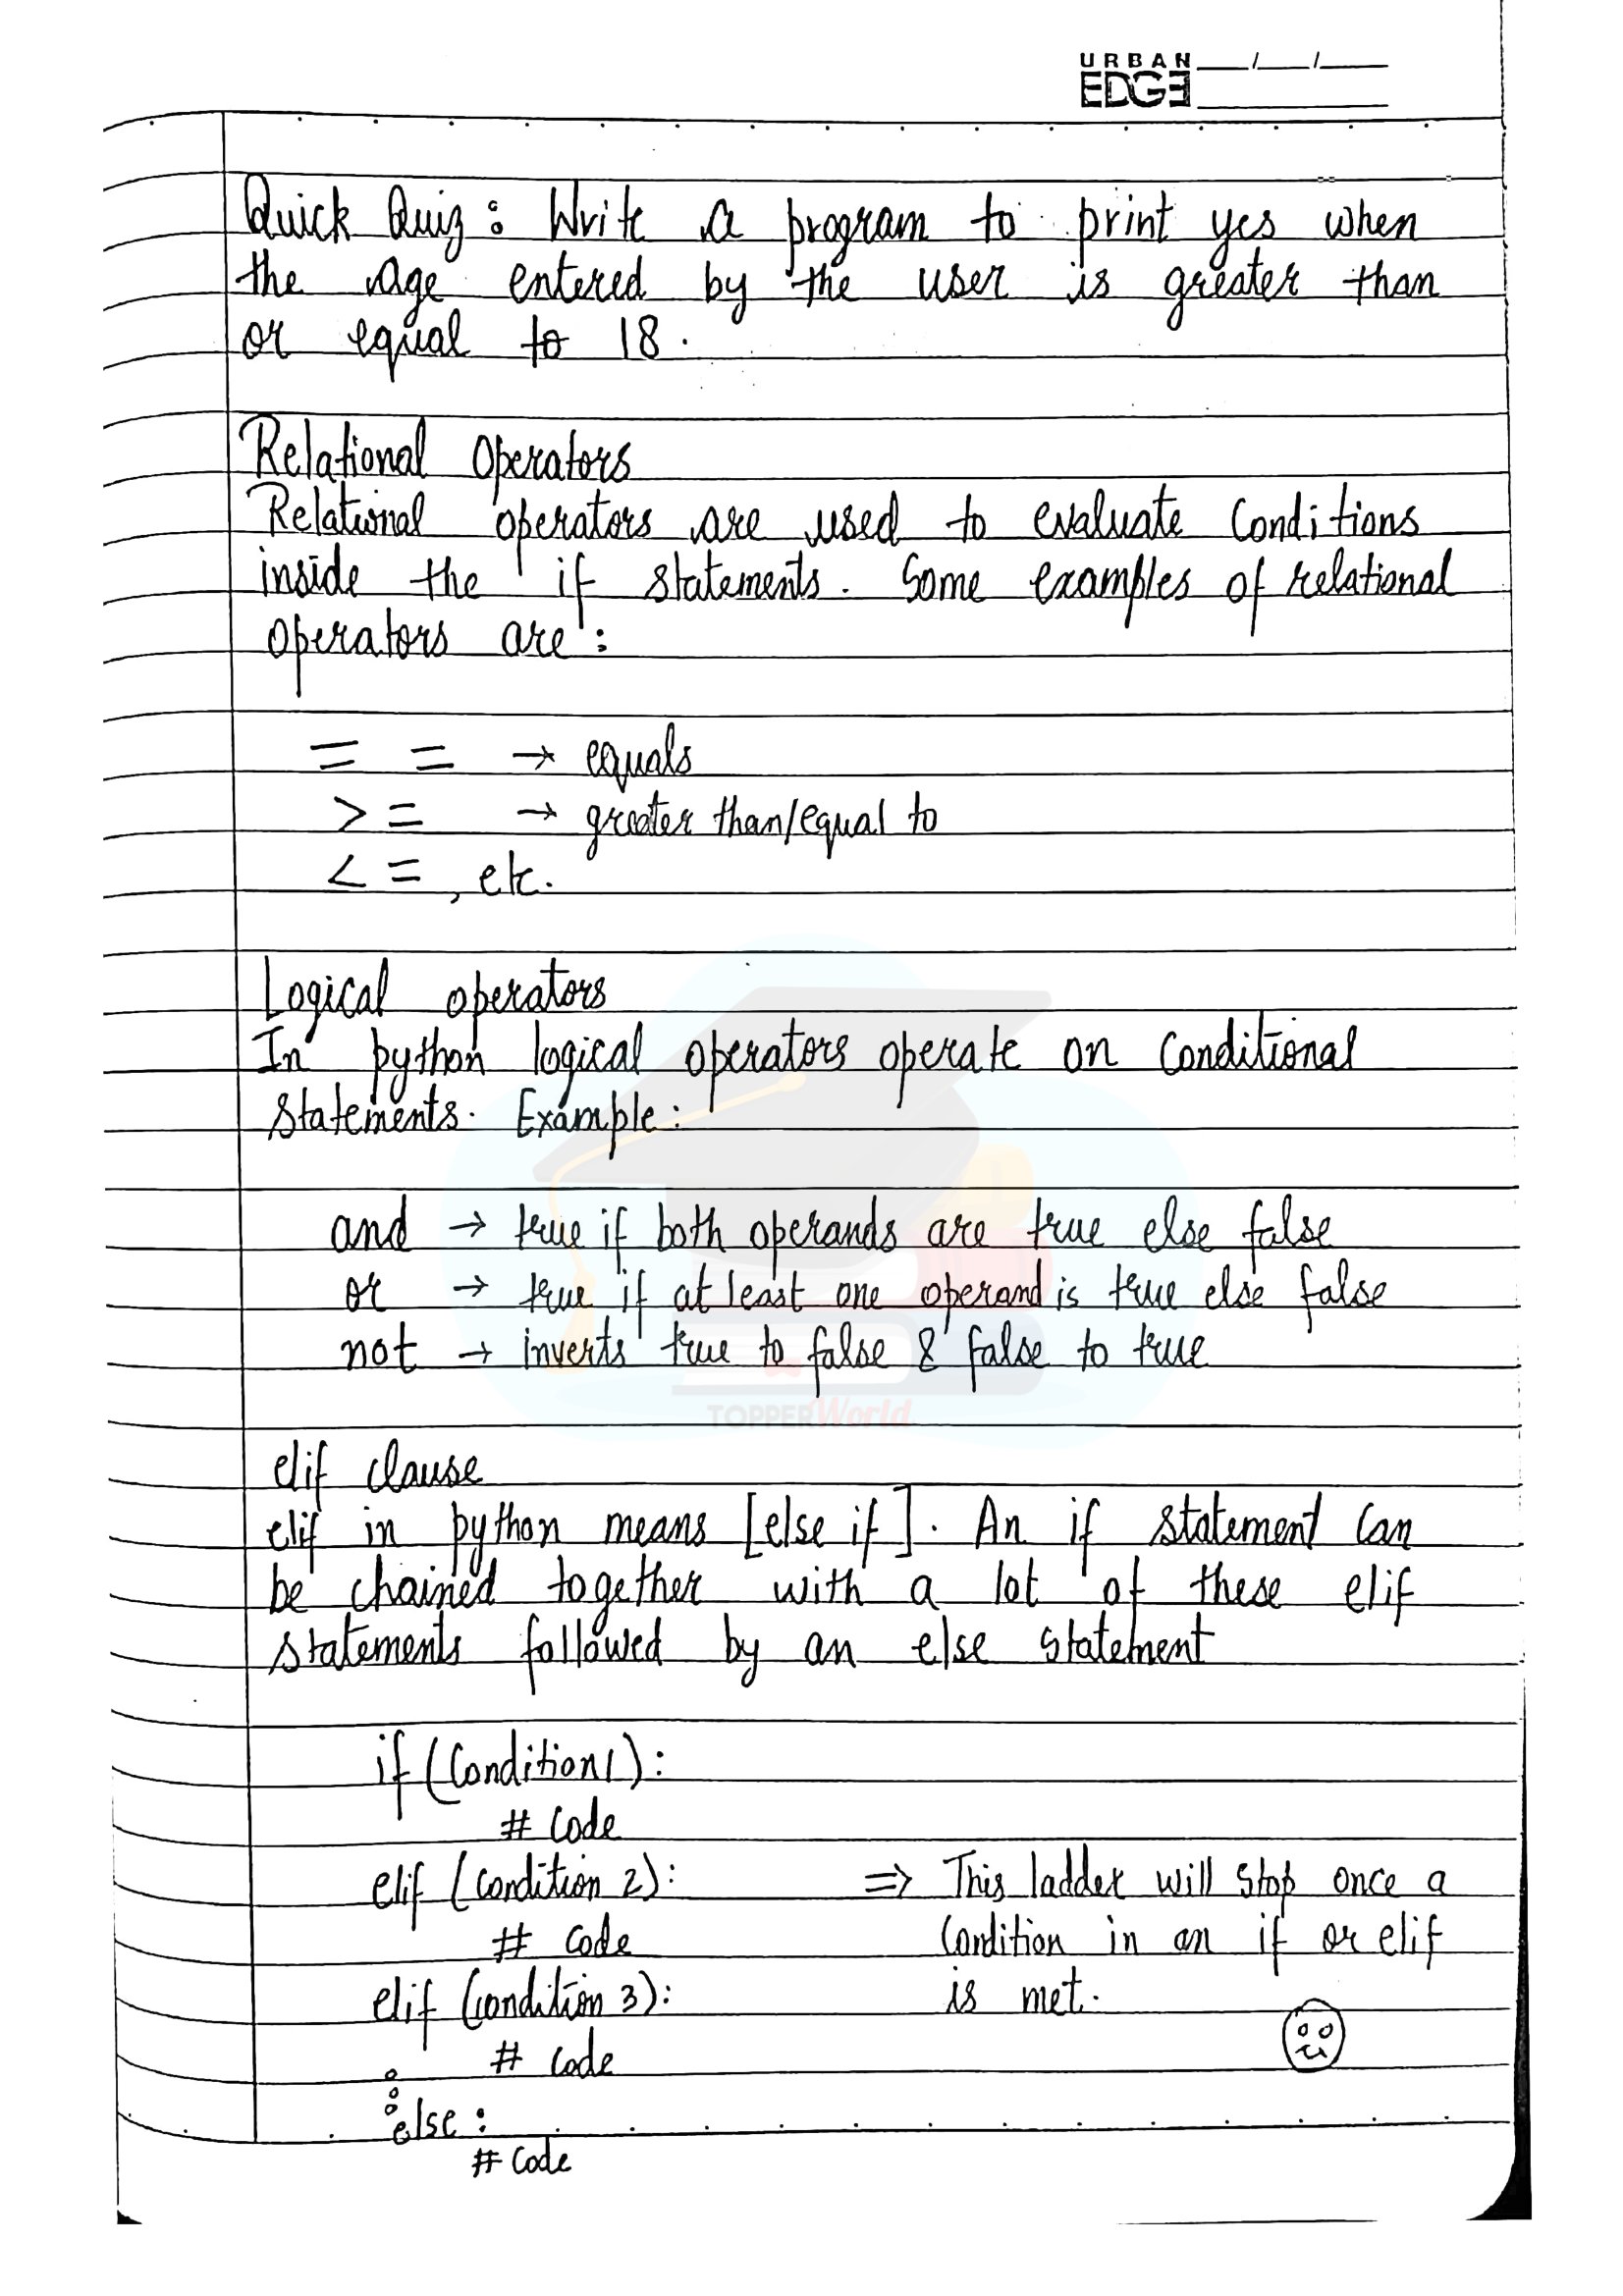 URBAN
EDGE
Quick Quiz : Write a program to print yes when
the age entered by the user is greater than
or equal to 18.
Relational Operators
Relational operators are used to evaluate Conditions
inside the if statements. Some examples of relational
operators are :
= = → equals
> = → greater than/equal to
< = , etc.
Logical operators
In python logical operators operate on Conditional
Statements. Example :
and → true if both operands are true else false
or → true if at least one operand is true else false
not → inverts true to false & false to true
TOPPERWorld
elif clause
elif in python means [else if]. An if statement Can
be chained together with a lot of these elif
statements followed by an else statement
if (Condition1) :
# Code
elif (Condition 2) : ⇒ This ladder will stop once a
# Code Condition in an if or elif
elif (condition 3) : is met.
# Code
else :
# Code